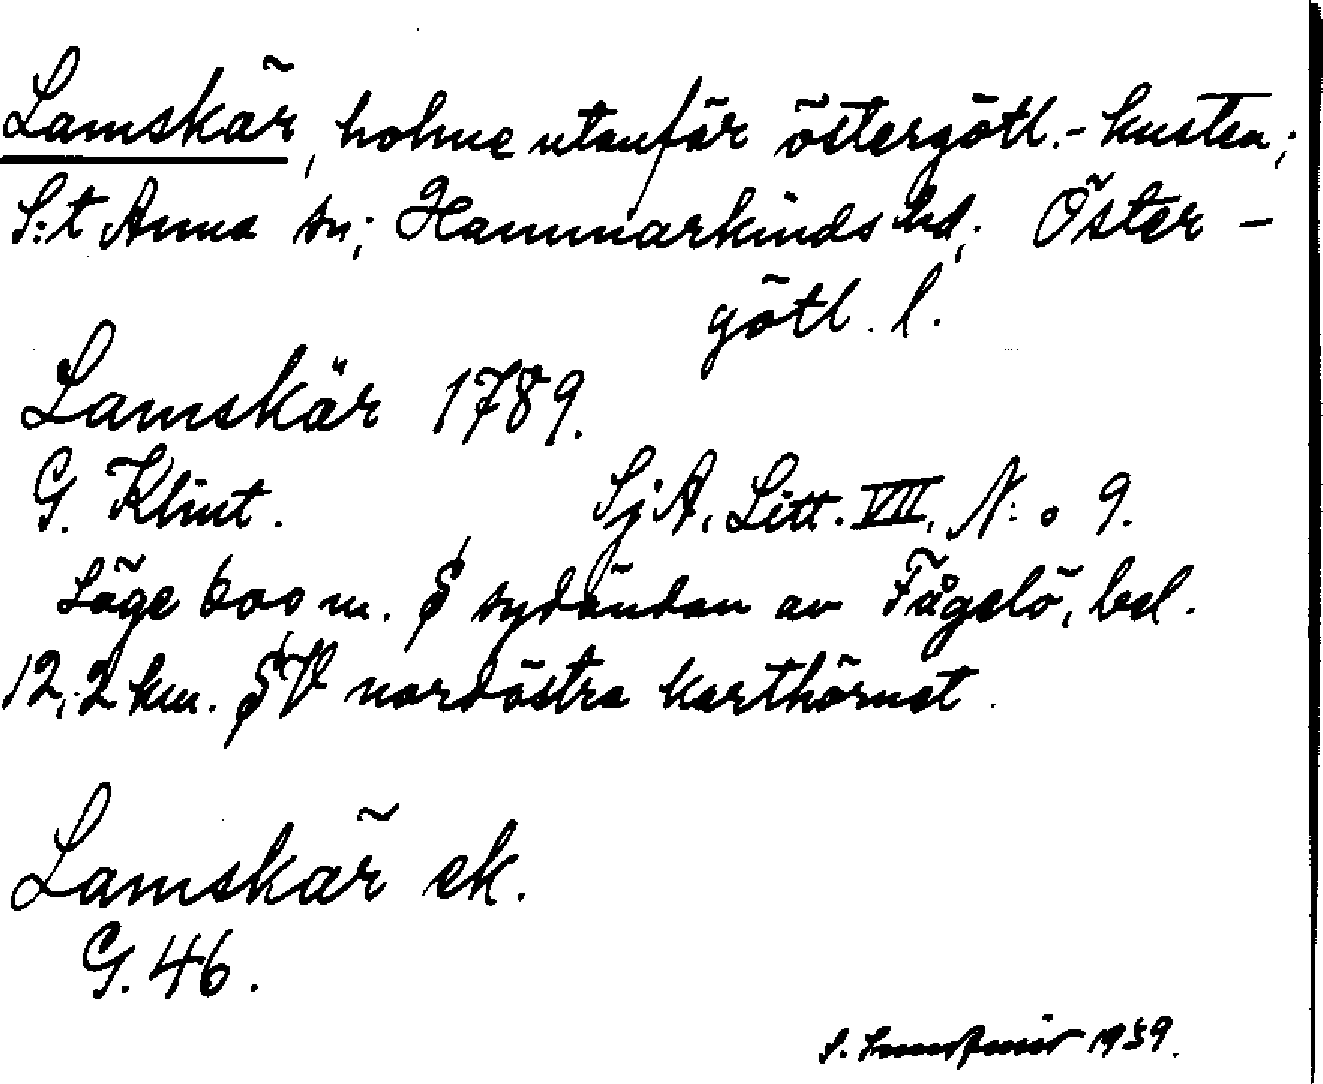 Lamskär, holme utanför östergötl.-kusten;
S:t Anna sn; Hammarkinds hd; Öster-
götl. l.
Lamskär 1789.
G. Klint. SjA. Litt. VII, N:o 9.
Läge 600 m. S sydändan av Fågelö, bel.
12,2 km. SV nordöstra karthörnet.
Lamskär ek.
G. 46.
S. 1939.